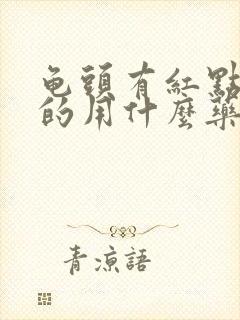 龟頭有紅點
的用什麼藥
青涼語